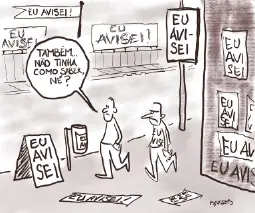 EU AVISEI!
EU
AVISEI
EU
AVISEI!
EU
AVI-
SEI
EU
AVI
SEI
TAMBÉM...
NÃO TINHA
COMO SABER,
NÉ?
EU
AVI
SEI
EU
AVI
SEI
EU AVI
SEI
EU
AVISEI
EU
AVI
SEI
EU AVISEI!